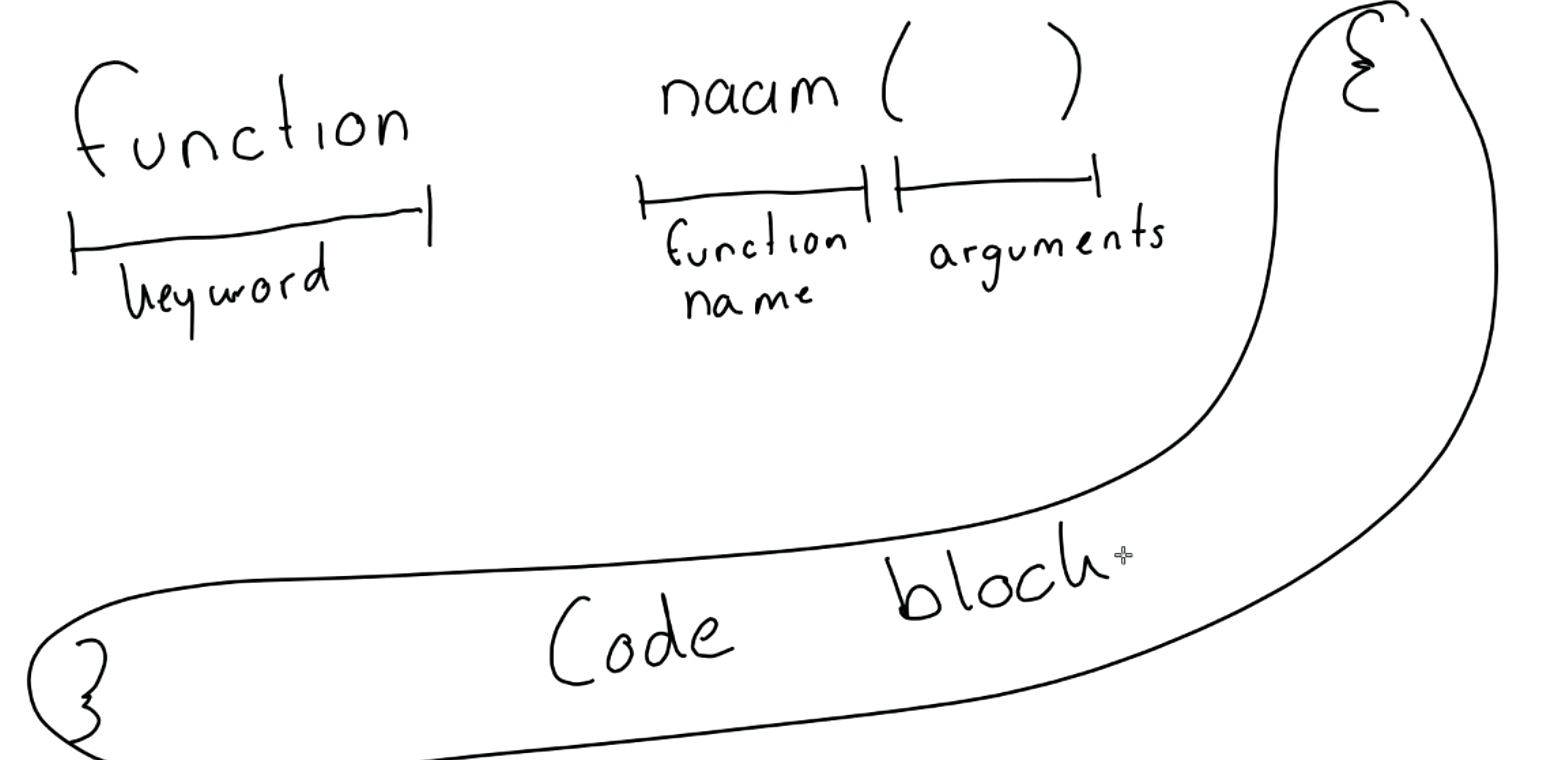 function naam ( ) {
keyword
function arguments
name
Code block
}